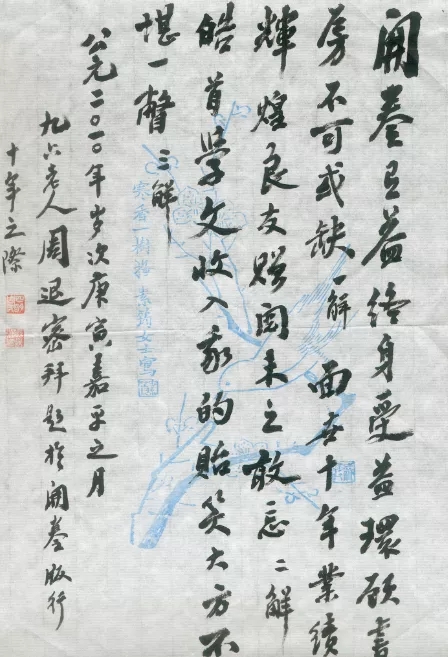 開卷有益終身受益環顧書
房不可或缺一解 面世十年業績
輝煌良友固未之敢忘二解
皓首學文收入我的貽笑大方不
堪一瞥三解
公元二〇一〇年歲次庚寅嘉平之月
九六老人周退密拜題於開卷版行
十年之際
寒香一樹
女士寫